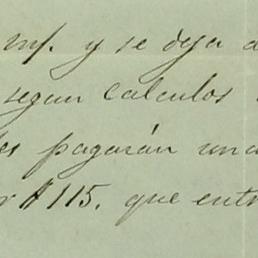 inf. y se deja
segun calculos
es pagarán una
r $115. que entr